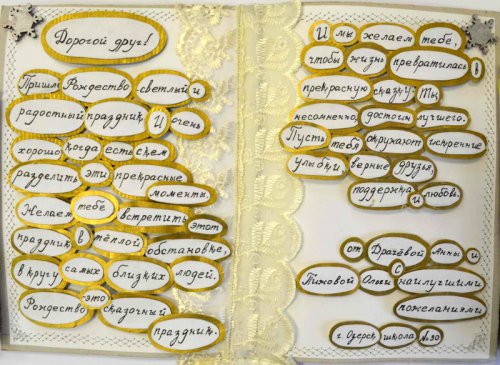 Дорогой друг!
Пришло Рождество светлый и
радостный праздник И очень
хорошо когда есть с кем
разделить эти прекрасные
моменты.
Желаем тебе встретить этот
праздник в тёплой обстановке,
в кругу самых близких людей.
Рождество это сказочный
праздник.
И мы желаем тебе,
чтобы жизнь превратилась в
прекрасную сказку. Ты
несомненно, достоин лучшего.
Пусть тебя окружают искренние
улыбки, верные друзья,
поддержка и любовь.
от Драчёвой Анны и
Пижовой Ольги С наилучшими
пожеланиями
г. Озерск школа №30